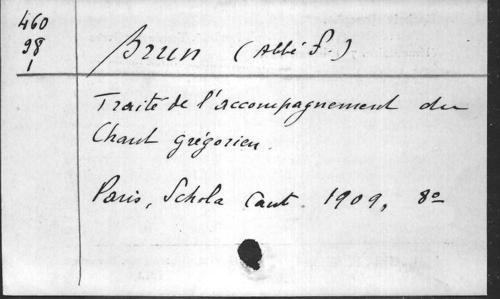 460
98
1
Brun (Abbé F.)
Traité de l'accompagnement du
Chant grégorien.
Paris, Schola Cant. 1909, 8º